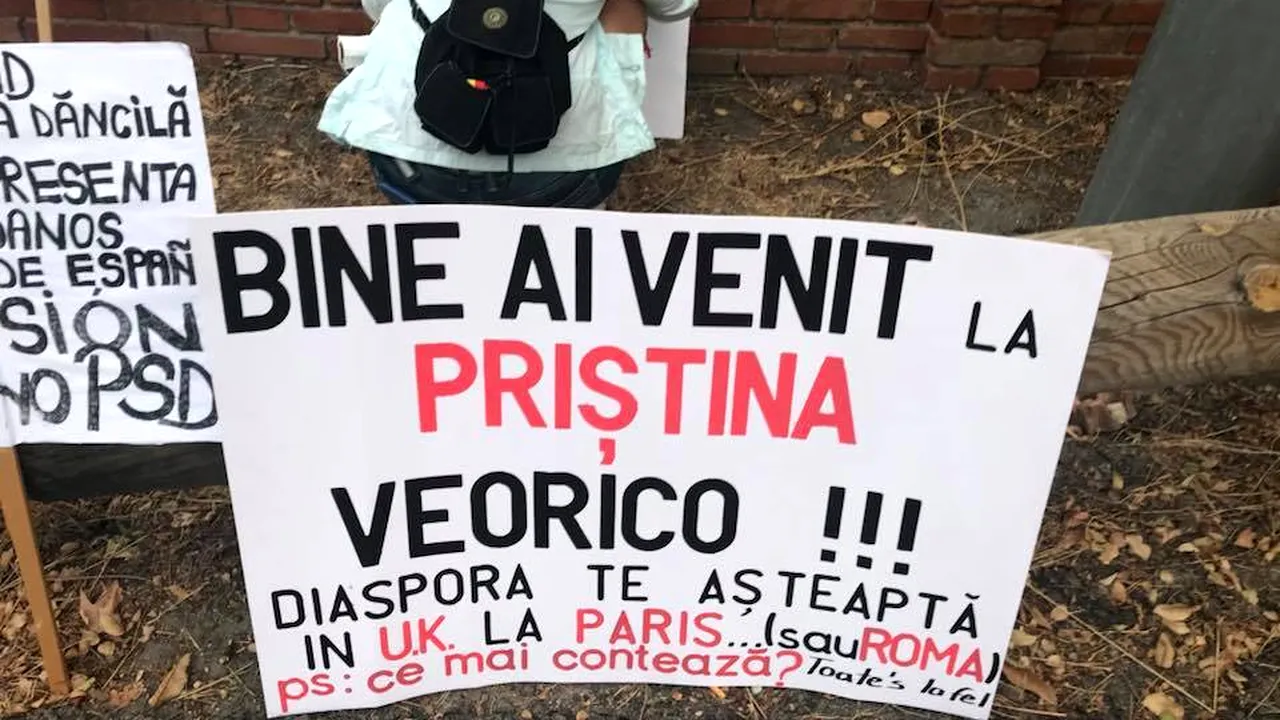 D
A DĂNCILĂ
PRESENTA
DANOS
DE ESPAÑ
SIÓN
NO PSD
BINE AI VENIT LA
PRIȘTINA
VEORICO !!!
DIASPORA TE AȘTEAPTĂ
IN U.K. LA PARIS...(sau ROMA)
ps: ce mai contează? Toate's la fel